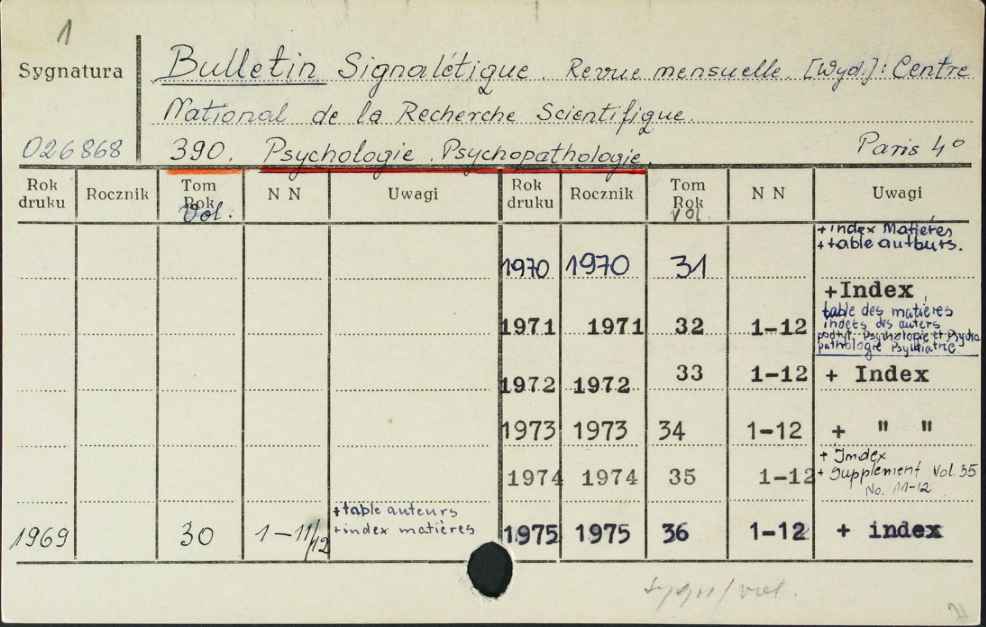 1
Sygnatura
Bulletin Signalétique. Revue mensuelle. [Wyd.]: Centre
National de la Recherche Scientifique.
026868 390. Psychologie. Psychopathologie. Paris 4º
Rok druku Rocznik Tom Rok Vol. N N Uwagi Rok druku Rocznik Tom Rok vol. N N Uwagi
+index Matières
+table auteurs.
1970 1970 31
+Index
table des matières
1971 1971 32 1-12
indeks des auters
podtyt. Psychologie et Psycho
pathologie Psychiatrie
1972 1972 33 1-12 + Index
1973 1973 34 1-12 + " "
+ Index
1974 1974 35 1-12 + Supplement Vol. 35
No. 11-12
+table auteurs
+index matières
1969 30 1-11/12 1975 1975 36 1-12 + index